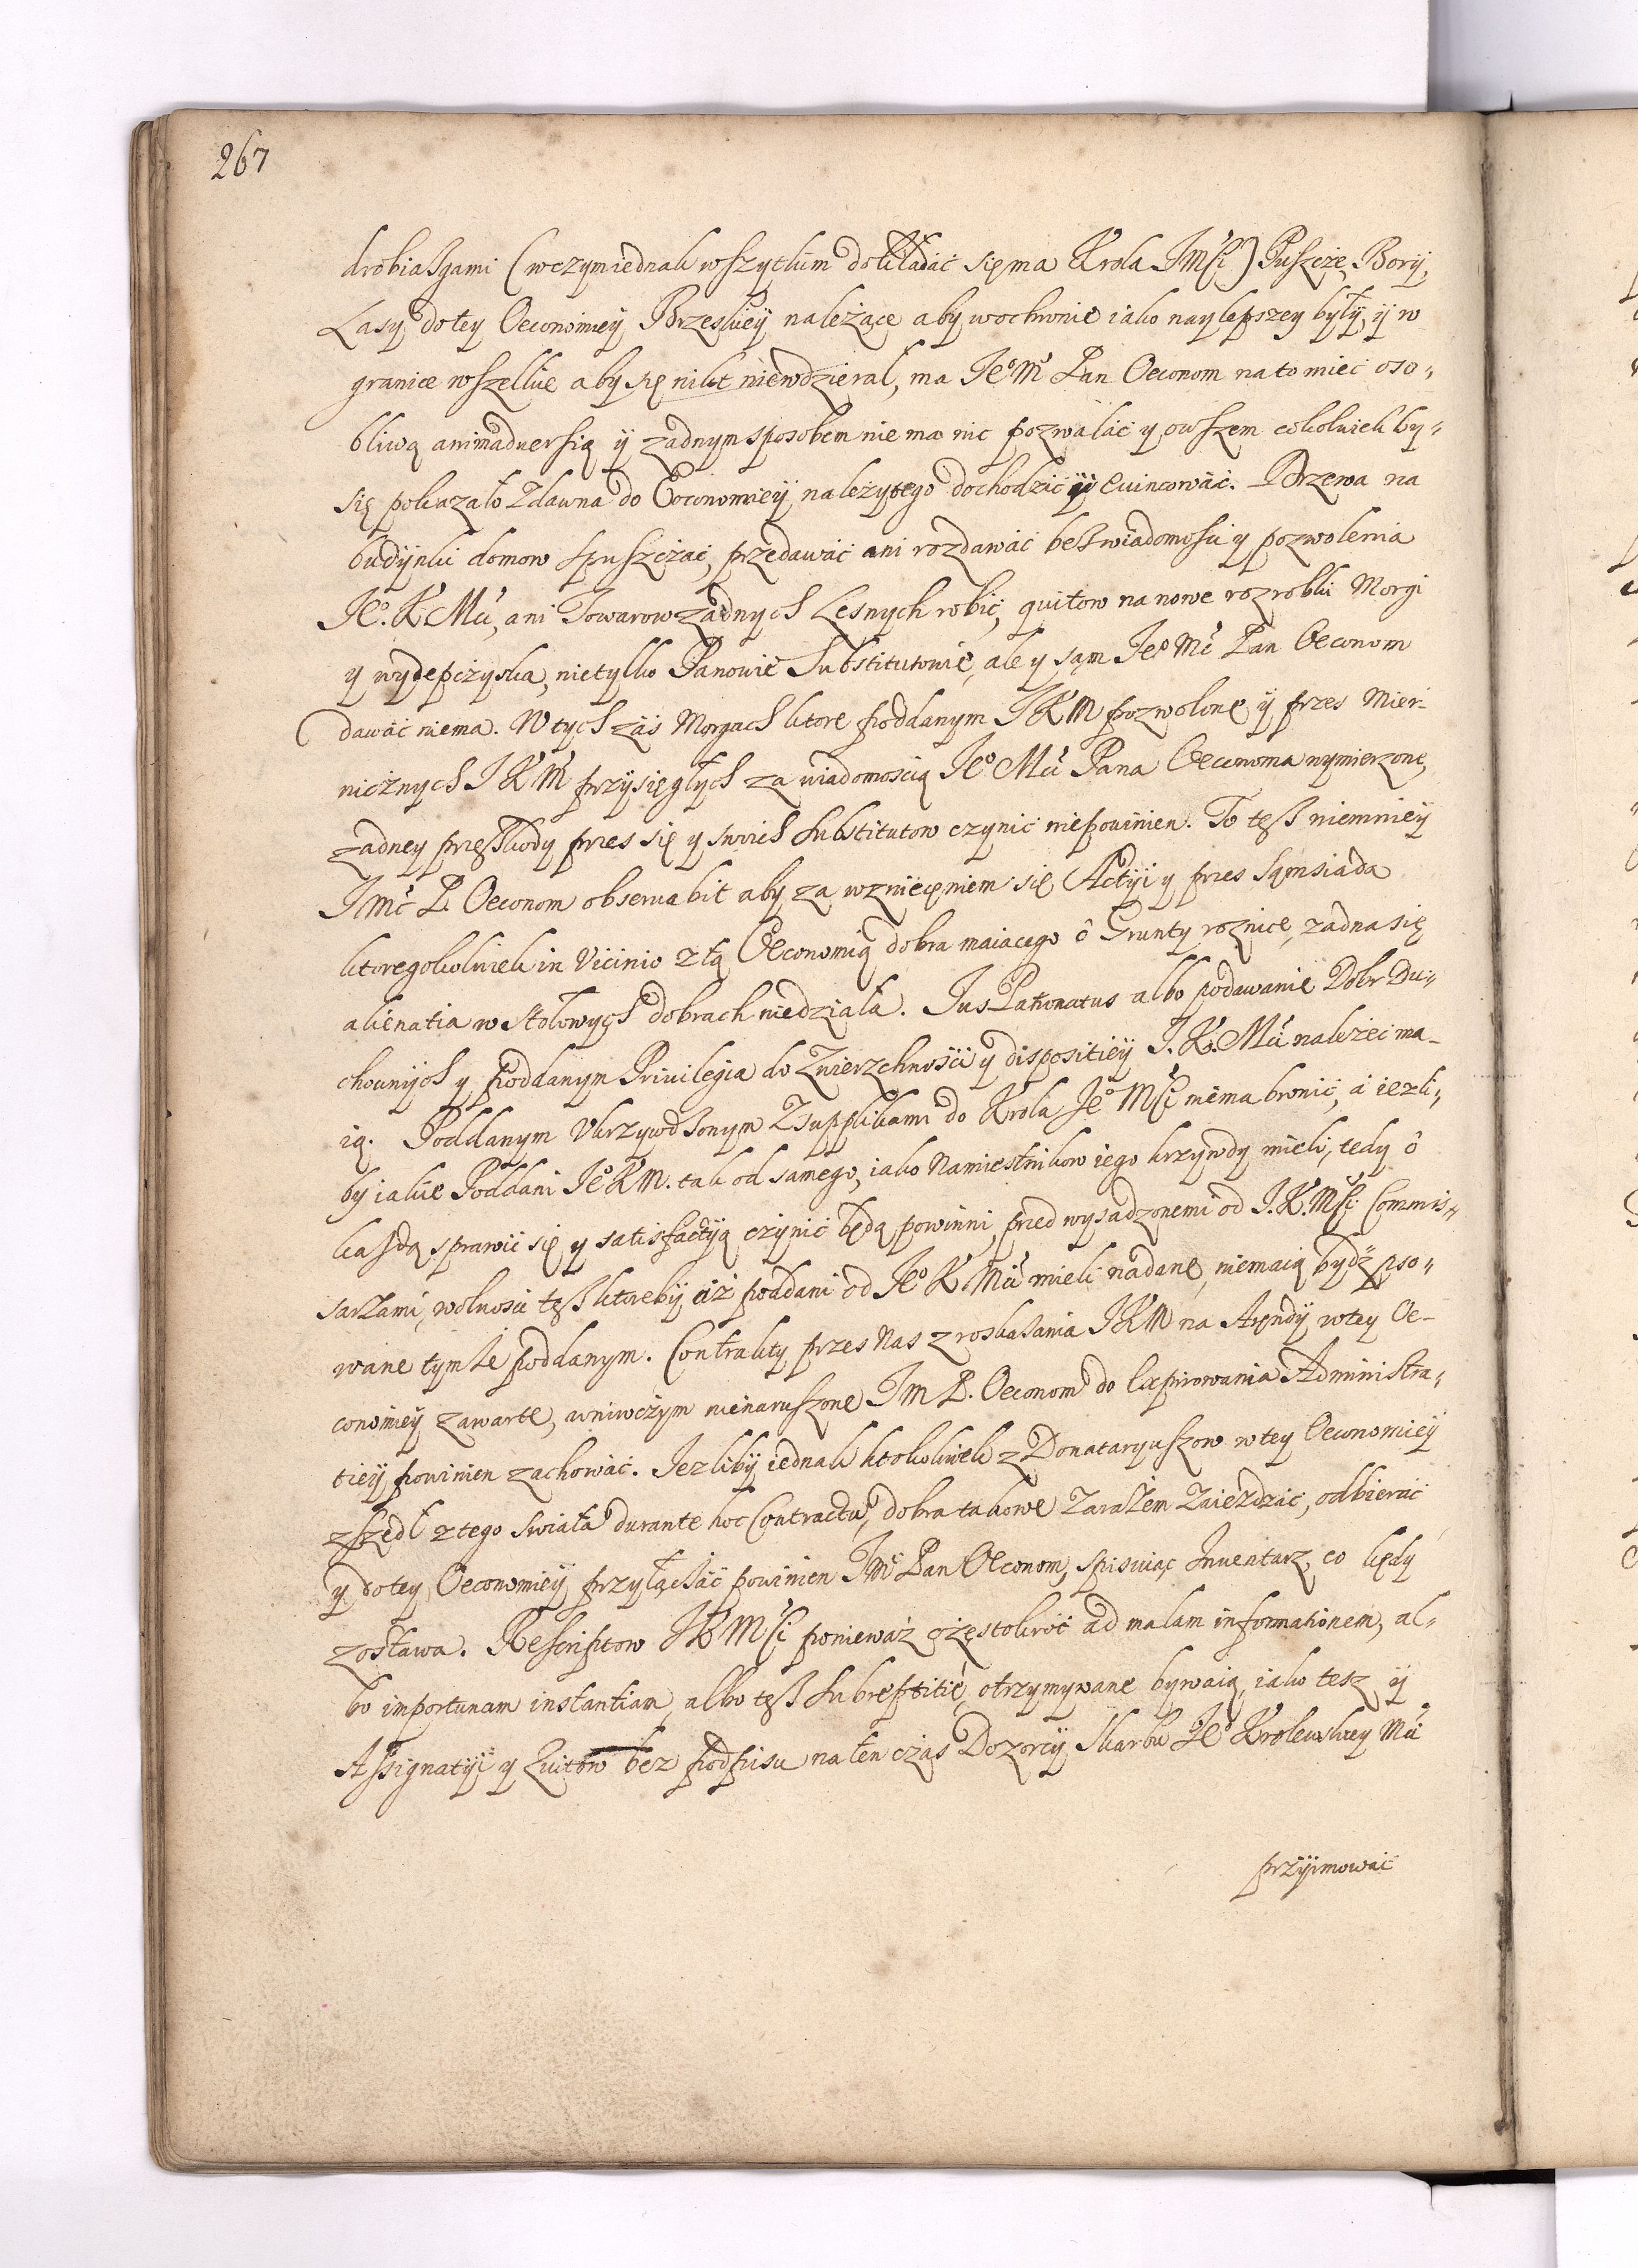 267
drobiaszgami (wczymiednak wszytkim dokładać się ma Krola JMści) Puszcże, Borÿ,
Lasy do tey Oeconomieÿ Brzeskieÿ należące aby w ochronie iako naylepszey byłÿ, ÿ w
granice wszelkie aby się nikt niewdzierał, ma Jeº Mć Pan Oeconom na to mieć oso„
bliwą animaduersią ÿ żadnym sposobem nie ma nic pozwalać y owszem cokolwiek by„
się pokazało zdawna do Eoconomieÿ należytego dochodzić ÿ Euincować. Drzewa na
budÿnki domow spuszcżać, przedawać ani rozdawać bez wiadomości y pozwolenia
Jeº. K. Mći, ani Towarow żadnych Lesnych robić, quitow na nowe rozrobki Morgi
y wydepcżyska, nietylko Panowie Substitutowie, ale y sąm Jeº Mć Pan Oeconom
dawać niema. W tych zaś Morgach ktore poddanym JKM pozwolone ÿ przes Mier-
nicżnych JKM przÿsięgłych za wiadomoscią Jeº Mći Pana Oeconoma wymierzone,
żadney pręszkody przes się y swoich Substitutow czynić niepowinien. To tesz niemnieÿ
JMć P. Oeconom obseruabit aby za wznięciem się Actÿi y przes Sąmsiada
ktoregokolwiek in Vicinio z tą Oeconomią dobra maiacego ô Grunty roznice, żadna się
alienatia w stołowych dobrach niedziała. Jus Patronatus albo podawanie Dobr Du„
chownÿch y poddanym Priuilegia do Zwierzchności y dispositieÿ J. K. Mći należeć ma-
ią. Poddanym Vkrzywdzonym z supplikami do Krola Jeº Mści niema bronić, á iezli„
by iakie Poddani Jeº KM. tak od samego, iako Namiestnikow iego krzywdy mieli, tedy ô
każdą sprawić się y satisfactÿą czynić będą powinni, przed wysadzonemi od J. K. Mści Commis„
sarzami, wolności tesz ktorebÿ ciż poddani od Jeº K Mći mieli nadane, niemaią bydź pso„
wane tymże poddanym. Contrakty przes Nas z roskazania JKM na Aręndÿ w tey Oe-
conomieÿ zawarte, w niwcżym nienaruszone Jm P. Oeconom do Expirowania Administra„
tieÿ powinien zachować. Jezlibÿ iednak ktokolwiek z Donataryuszow w tey Oeconomieÿ
zszedł z tego swiata durante hoc Contractu, dobra takowe zarazem zaieżdzić, odbierać
y do tey Oeconomieÿ przyłączać powinien JMć Pan Oeconom, spisuiąc Inuentarz, co kędy
zostawa. Rescriptow JK Mści ponieważ częstokroć ad malam informationem, al„
bo importunam instantiam, albo tesz subreptitie otrzymywane bywaią, iako tesz ÿ
Assignatÿi y Quitow bez podpisu na ten czas Dozorcÿ Skarbu Jeº Krolewskey Mći
przÿimować